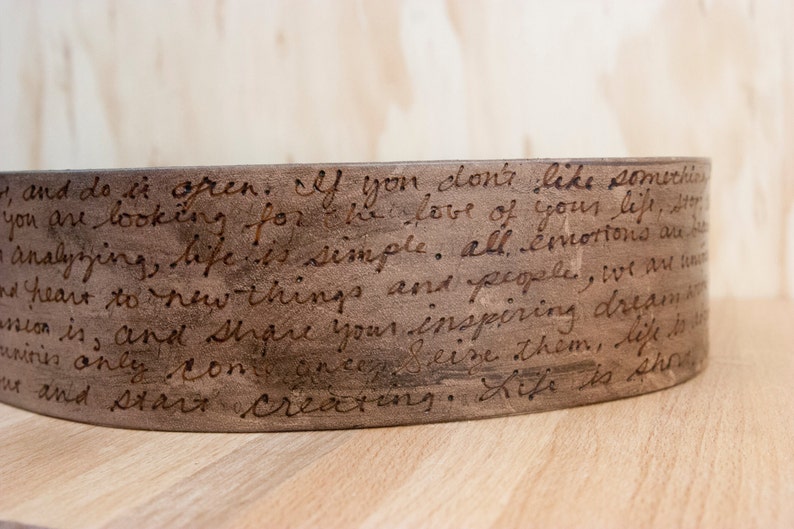 and do it often. If you don't like something
you are looking for the love of your life, stop
analyzing, life is simple. all emotions are
and heart to new things and people, we are
is, and share your inspiring dream
only come once, Seize them. life is
and start creating. Life is short